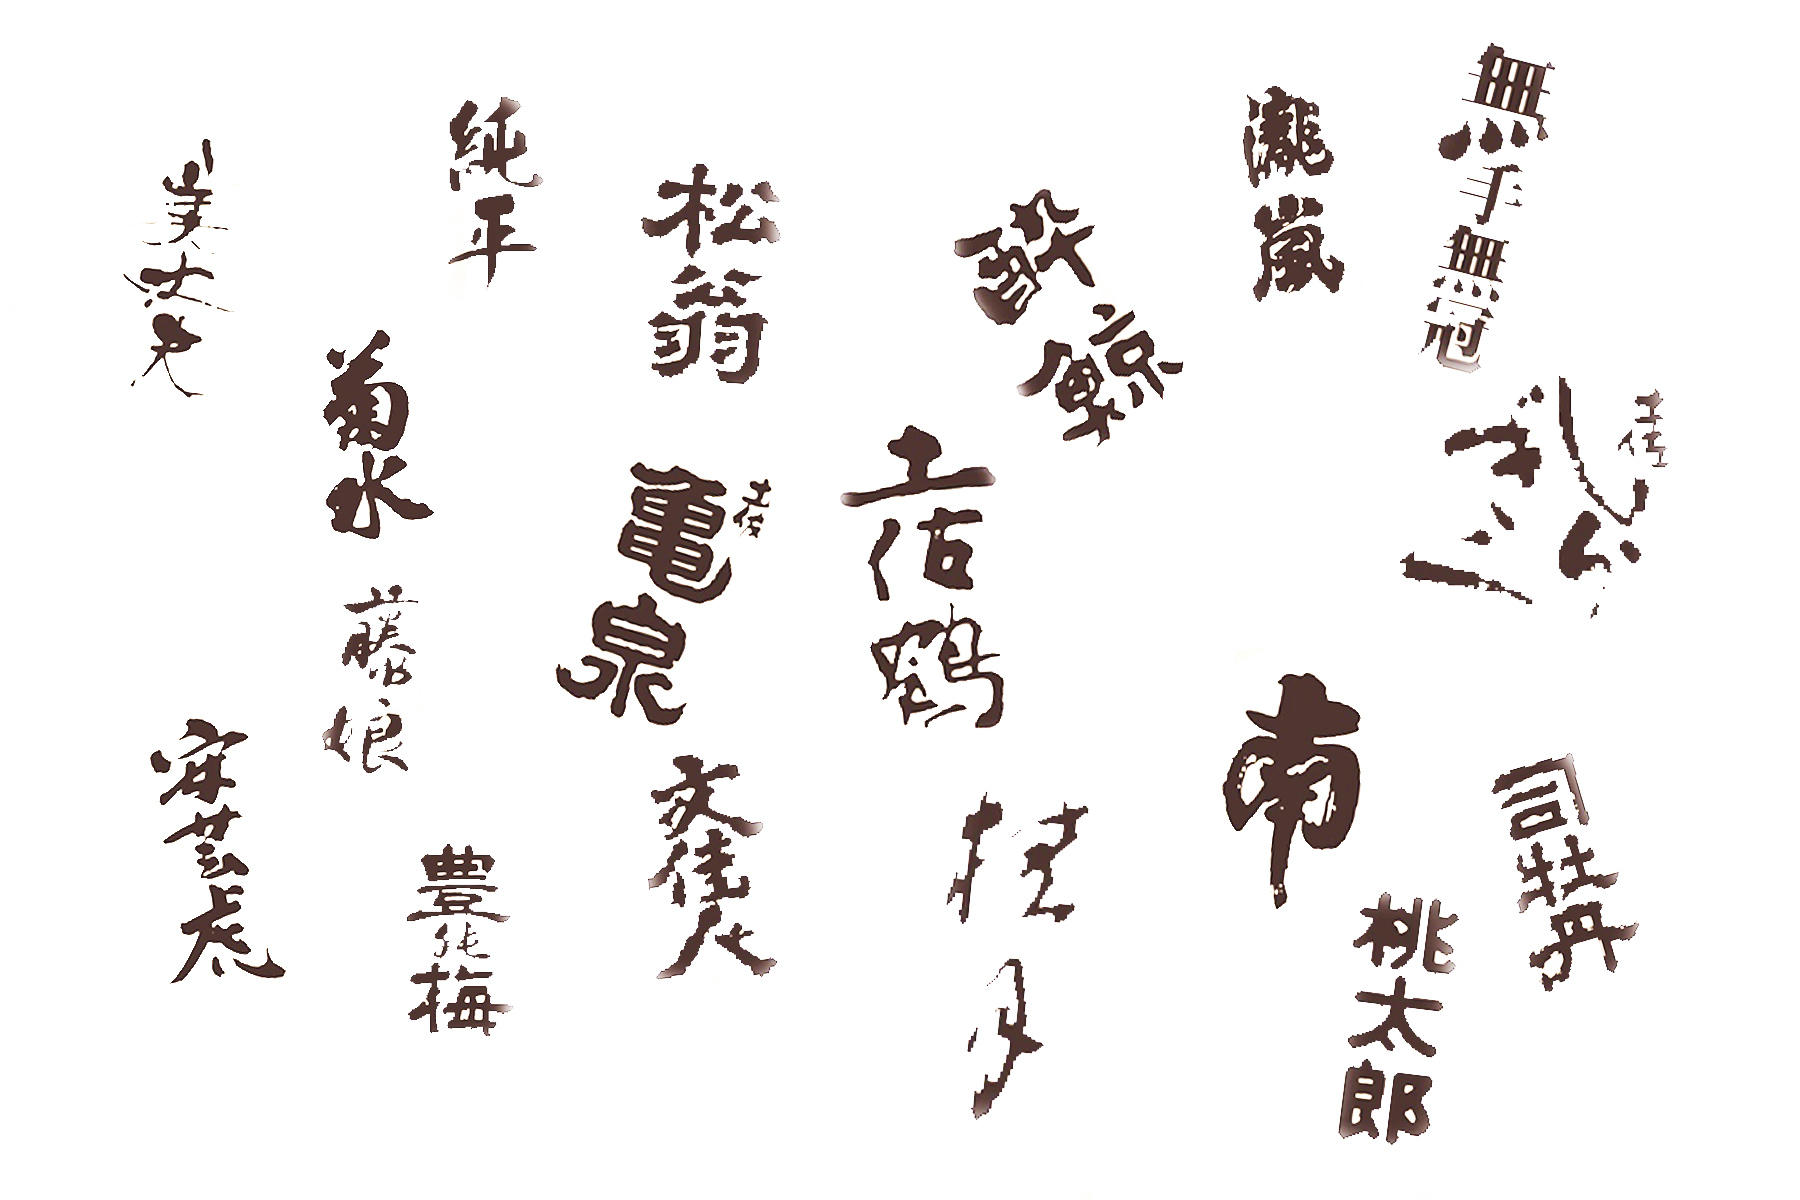 無手無冠
瀧嵐
土佐
しらぎく
酔鯨
松翁
純平
美丈夫
菊水
土佐
亀泉
土佐鶴
藤娘
南
司牡丹
安芸虎
文佳人
桂月
豊の梅
桃太郎